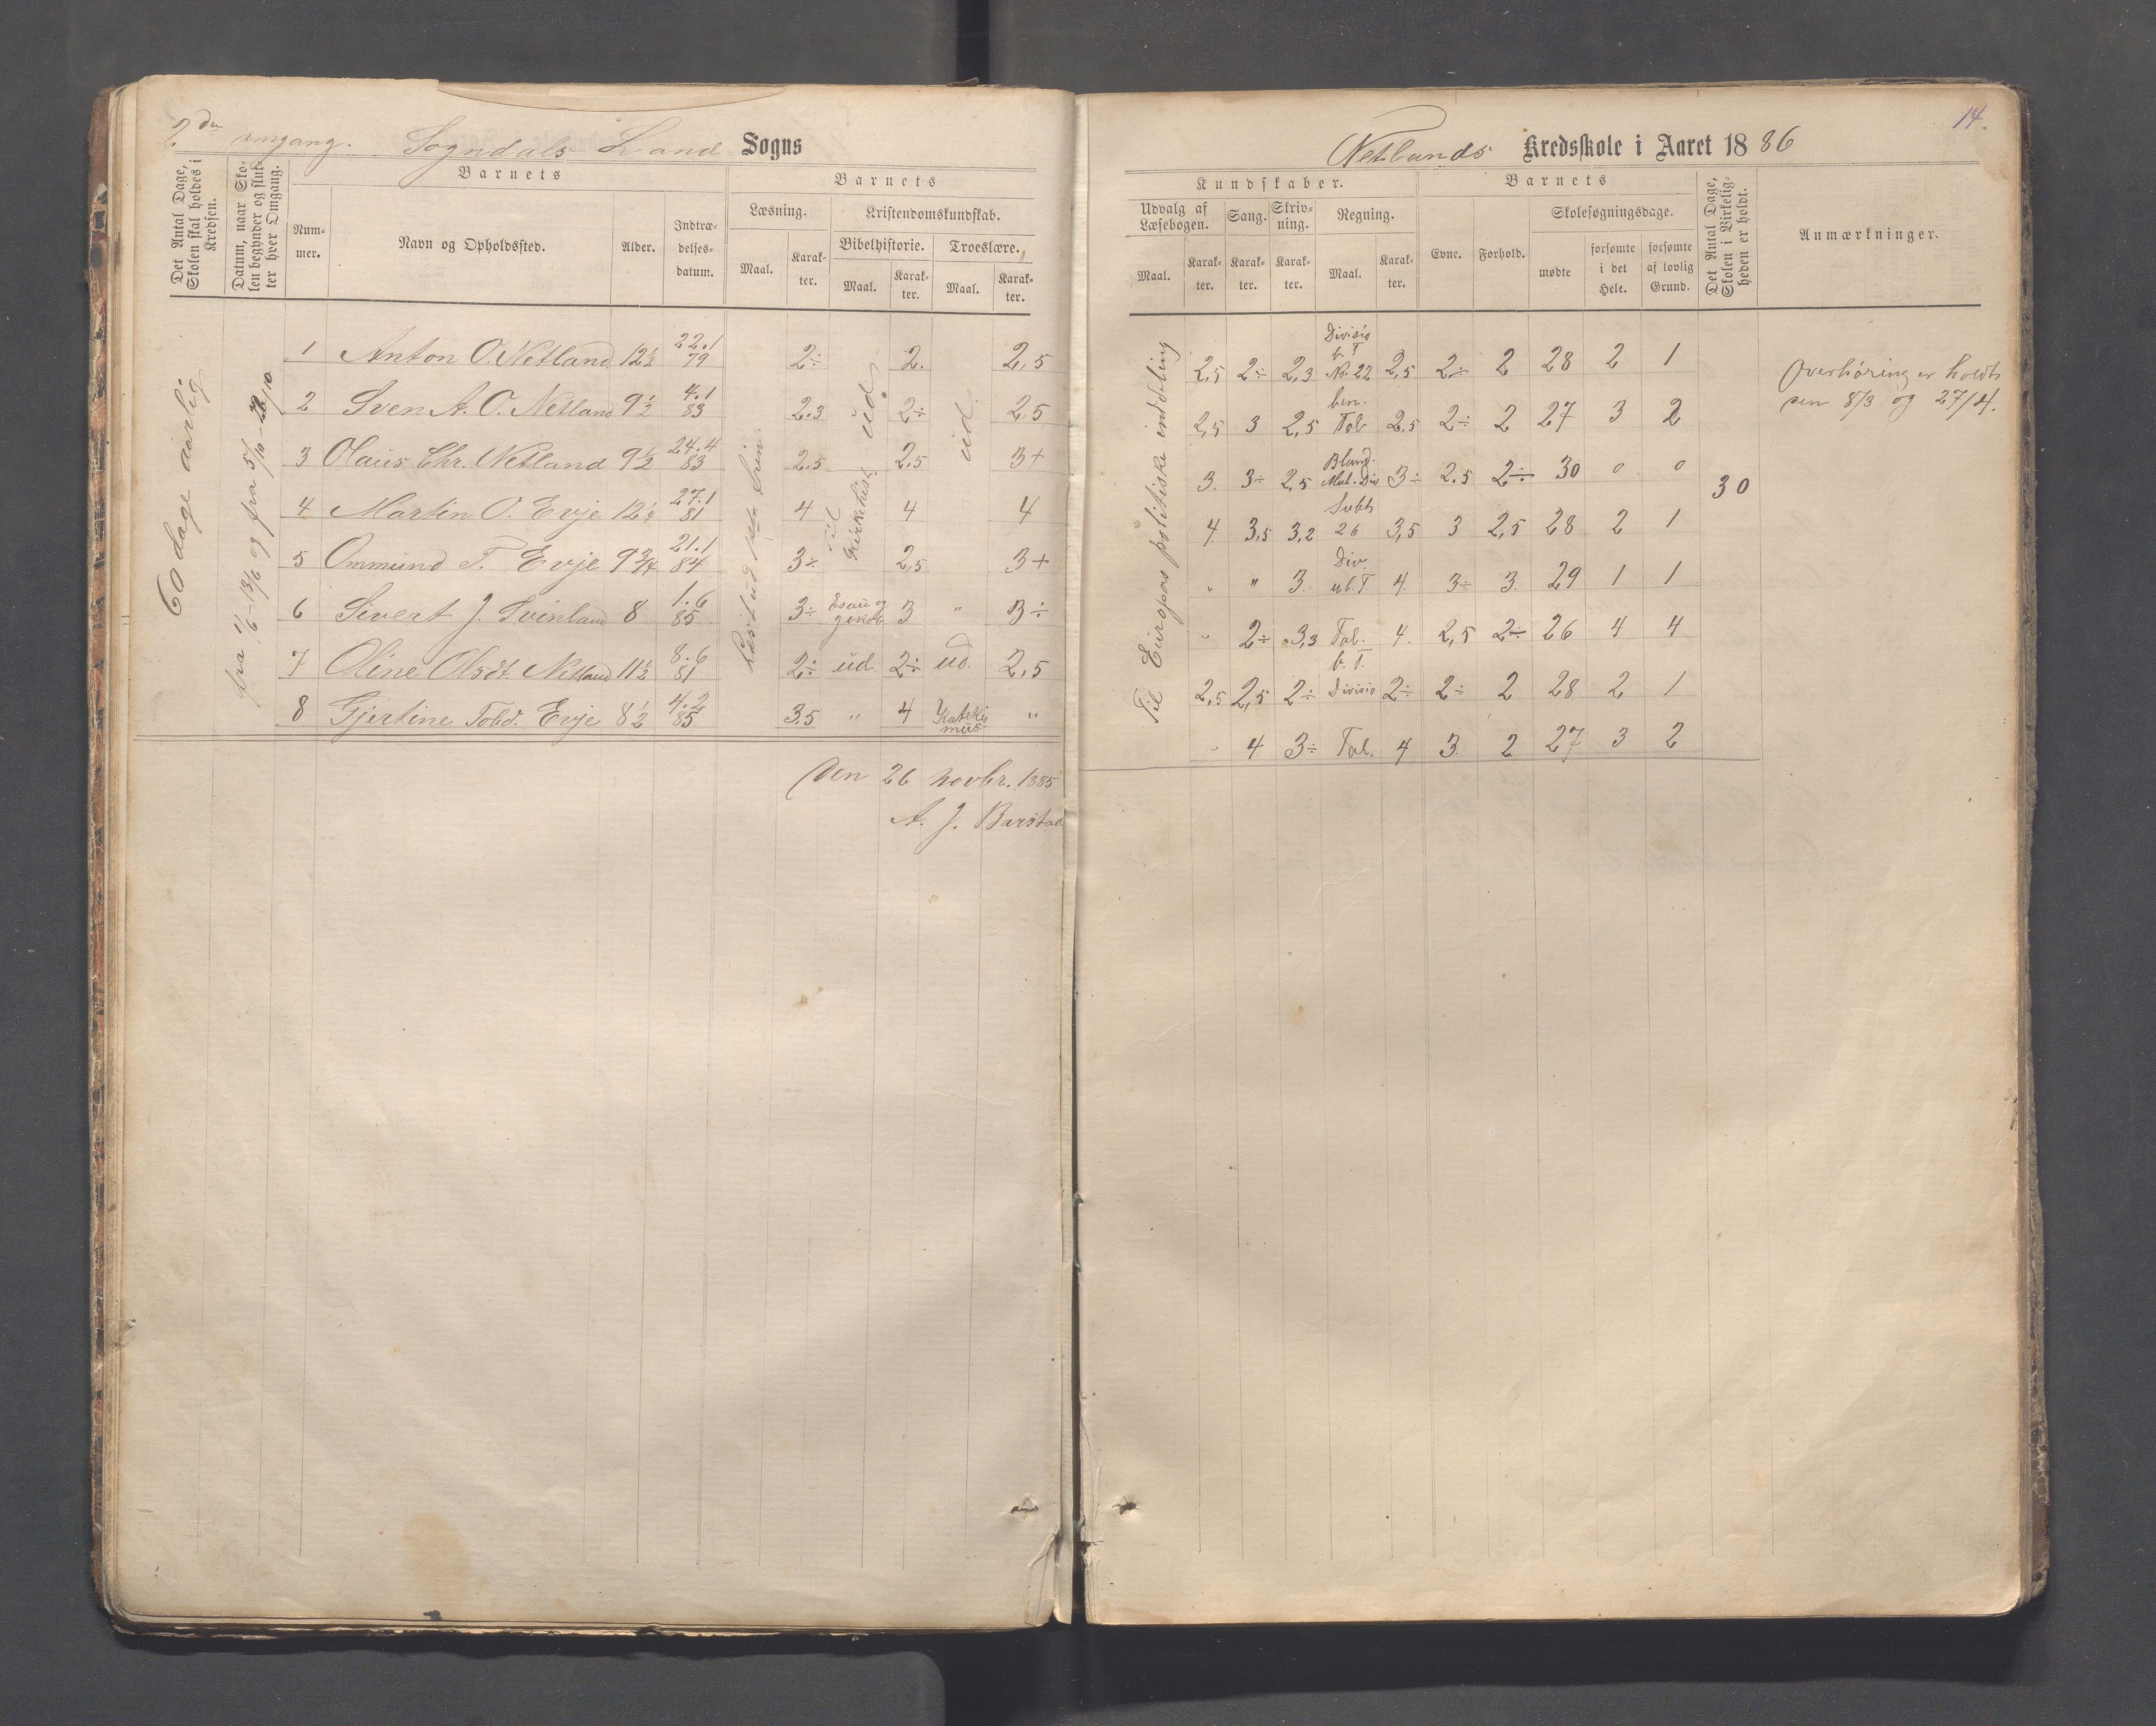 2den omgang. Sogndals Land Sogns
Det Antal Dage, Skolen skal holdes i Kredsen.
Datum, naar Skolen begynder og slutter hver Omgang.
Barnets
Barnets
Nummer.
Navn og Opholdssted.
Alder.
Indtrædelsesdatum.
Læsning.
Kristendomskundskab.
Maal.
Karakter.
Bibelhistorie.
Troeslære.
Maal.
Karakter.
Maal.
Karakter.
60 dage aarlig
1 Anton O. Netland 12½ 22.1 79 2÷ 2. 2,5
2 Sven A. O. Netland 9½ 4.1 83 2.3 2÷ 2.5
3 Olaus Chr. Netland 9½ 24.4 83 2.5 2,5 3+
4 Martin O. Evje 12¼ 27.1 81 4 4 4
5 Ommund T. Evje 9¾ 21.1 84 3÷ 2,5 3+
6 Sivert J. Svinland 8 1.6 85 3÷ Esau og Jakob 3 " 3÷
7 Oline Olsdt. Netland 11½ 8.6 81 2÷ ud. 2÷ ud. 2,5
8 Gjertine Tobd. Evje 8½ 4.2 85 3.5 " 4 Katekismus "
ud
ud.
Den 26 novbr. 1885
A. J. Barstad
14.
Netlands Kredsskole i Aaret 1886
Kundskaber.
Barnets
Det Antal Dage, Skolen i Virkeligheden er holdt.
Anmærkninger.
Udvalg af Læsebogen.
Sang.
Skrivning.
Regning.
Evne.
Forhold.
Skolesøgningsdage.
Maal.
Karakter.
Karakter.
Karakter.
Maal.
Karakter.
mødte
forsømte i det Hele.
forsømte af lovlig Grund.
Til Europas politiske inddeling
2,5 2÷ 2,3 Divisio b. T No. 22 2,5 2÷ 2 28 2 1
2,5 3 2,5 ben. Tal 2,5 2÷ 2 27 3 2
3. 3÷ 2,5 Bland. Mul. Div 3÷ 2.5 2÷ 30 0 0
4 3,5 3,2 Subt 26 3,5 3 2,5 28 2 1
" " 3. Div. ub. T 4. 3÷ 3. 29 1 1
" 2÷ 3,3 Tal. 4. 2,5 2÷ 26 4 4
2,5 2,5 2÷ b. T. Divisio 2÷ 2÷ 2 28 2 1
" 4 3÷ Tal. 4 3. 2 27 3 2
30
Overhøring er holdt
den 8/3 og 27/4.